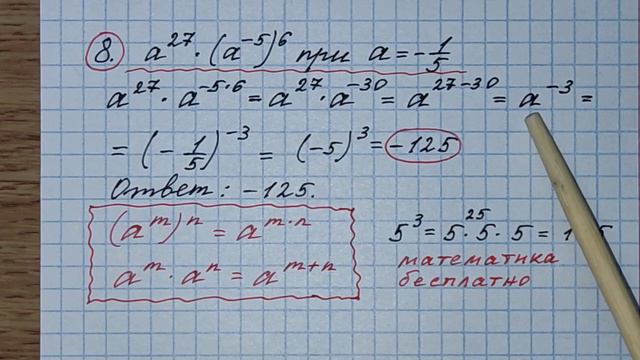 8. a²⁷ · (a⁻⁵)⁶ при a = -1/5
a²⁷ · a⁻⁵·⁶ = a²⁷ · a⁻³⁰ = a²⁷⁻³⁰ = a⁻³ =
= (-1/5)⁻³ = (-5)³ = -125
Ответ: -125.
(aᵐ)ⁿ = aᵐ·ⁿ
aᵐ · aⁿ = aᵐ⁺ⁿ
25
5³ = 5·5·5 = 1 5
математика
бесплатно